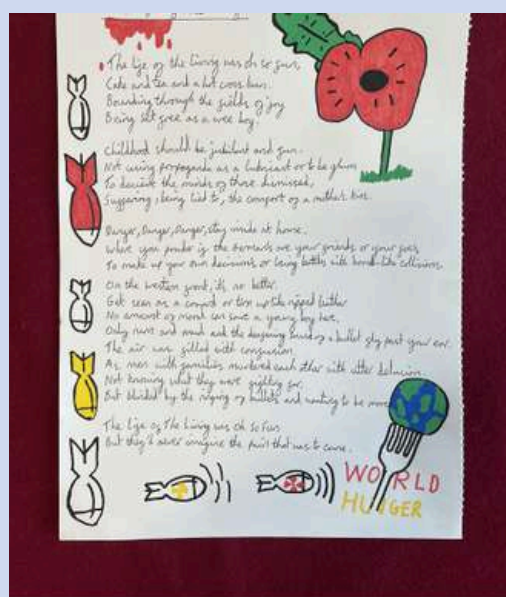 The Life of the Living was oh so fun,
Cake and tea and a hot cross bun.
Bounding through the fields of joy
Being set free as a wee boy.
Childhood should be jubilant and fun.
Not using propaganda as a lubricant or to be glum
To decient the minds of those dismissed,
Suffering, being lied to, the comfort of a mothers kiss.
Danger, Danger, Danger, stay inside at home.
Where you ponder if the Germans are your friends or your foes
To make up your own decisions or losing battles with bomb-like collisions.
On the western front, it's no better.
Get seen as a coward or
No amount of morale can save a young boy here,
Only guns and mud and the deafening sound of a bullet fly past your ear.
The air was filled with confusion
As men with families murdered each other with utter delusion
Not knowing what they were fighting for.
But blinded by the raging of bullets and wanting to be more
The Life of The Living was oh so Fun
But they'd never imagine the pain that was to come.
WORLD
HUNGER